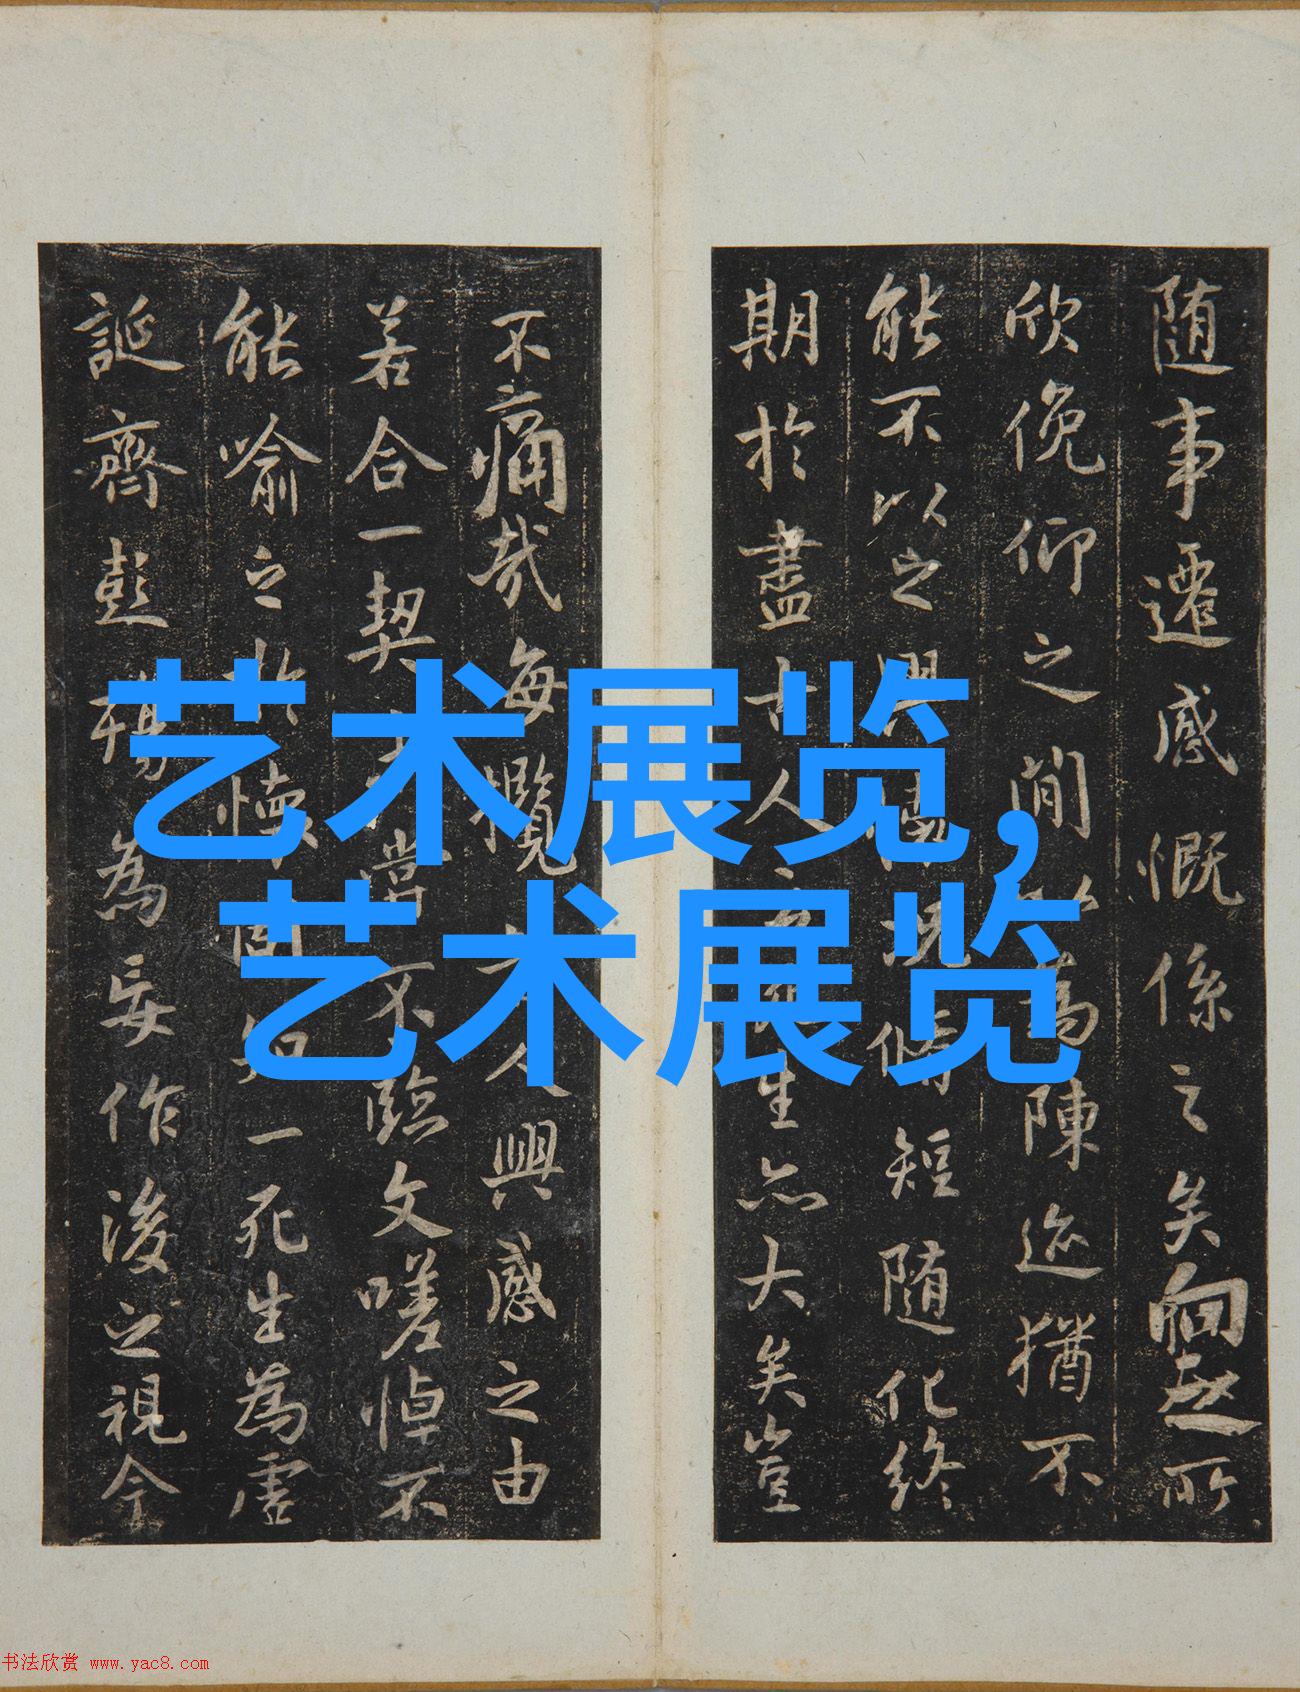 随事遷感慨係之矣向之所
欣俛仰之閒以為陳迹猶不
能不以之興懷況脩短随化終
期於盡古人云死生亦大矣豈
不痛哉每攬昔人興感之由
若合一契未嘗不臨文嗟悼不
能喻之於懷固知一死生為虛
誕齊彭殤為妄作後之視今
艺术展览,
艺术展览
书法欣赏 www.yac8.com